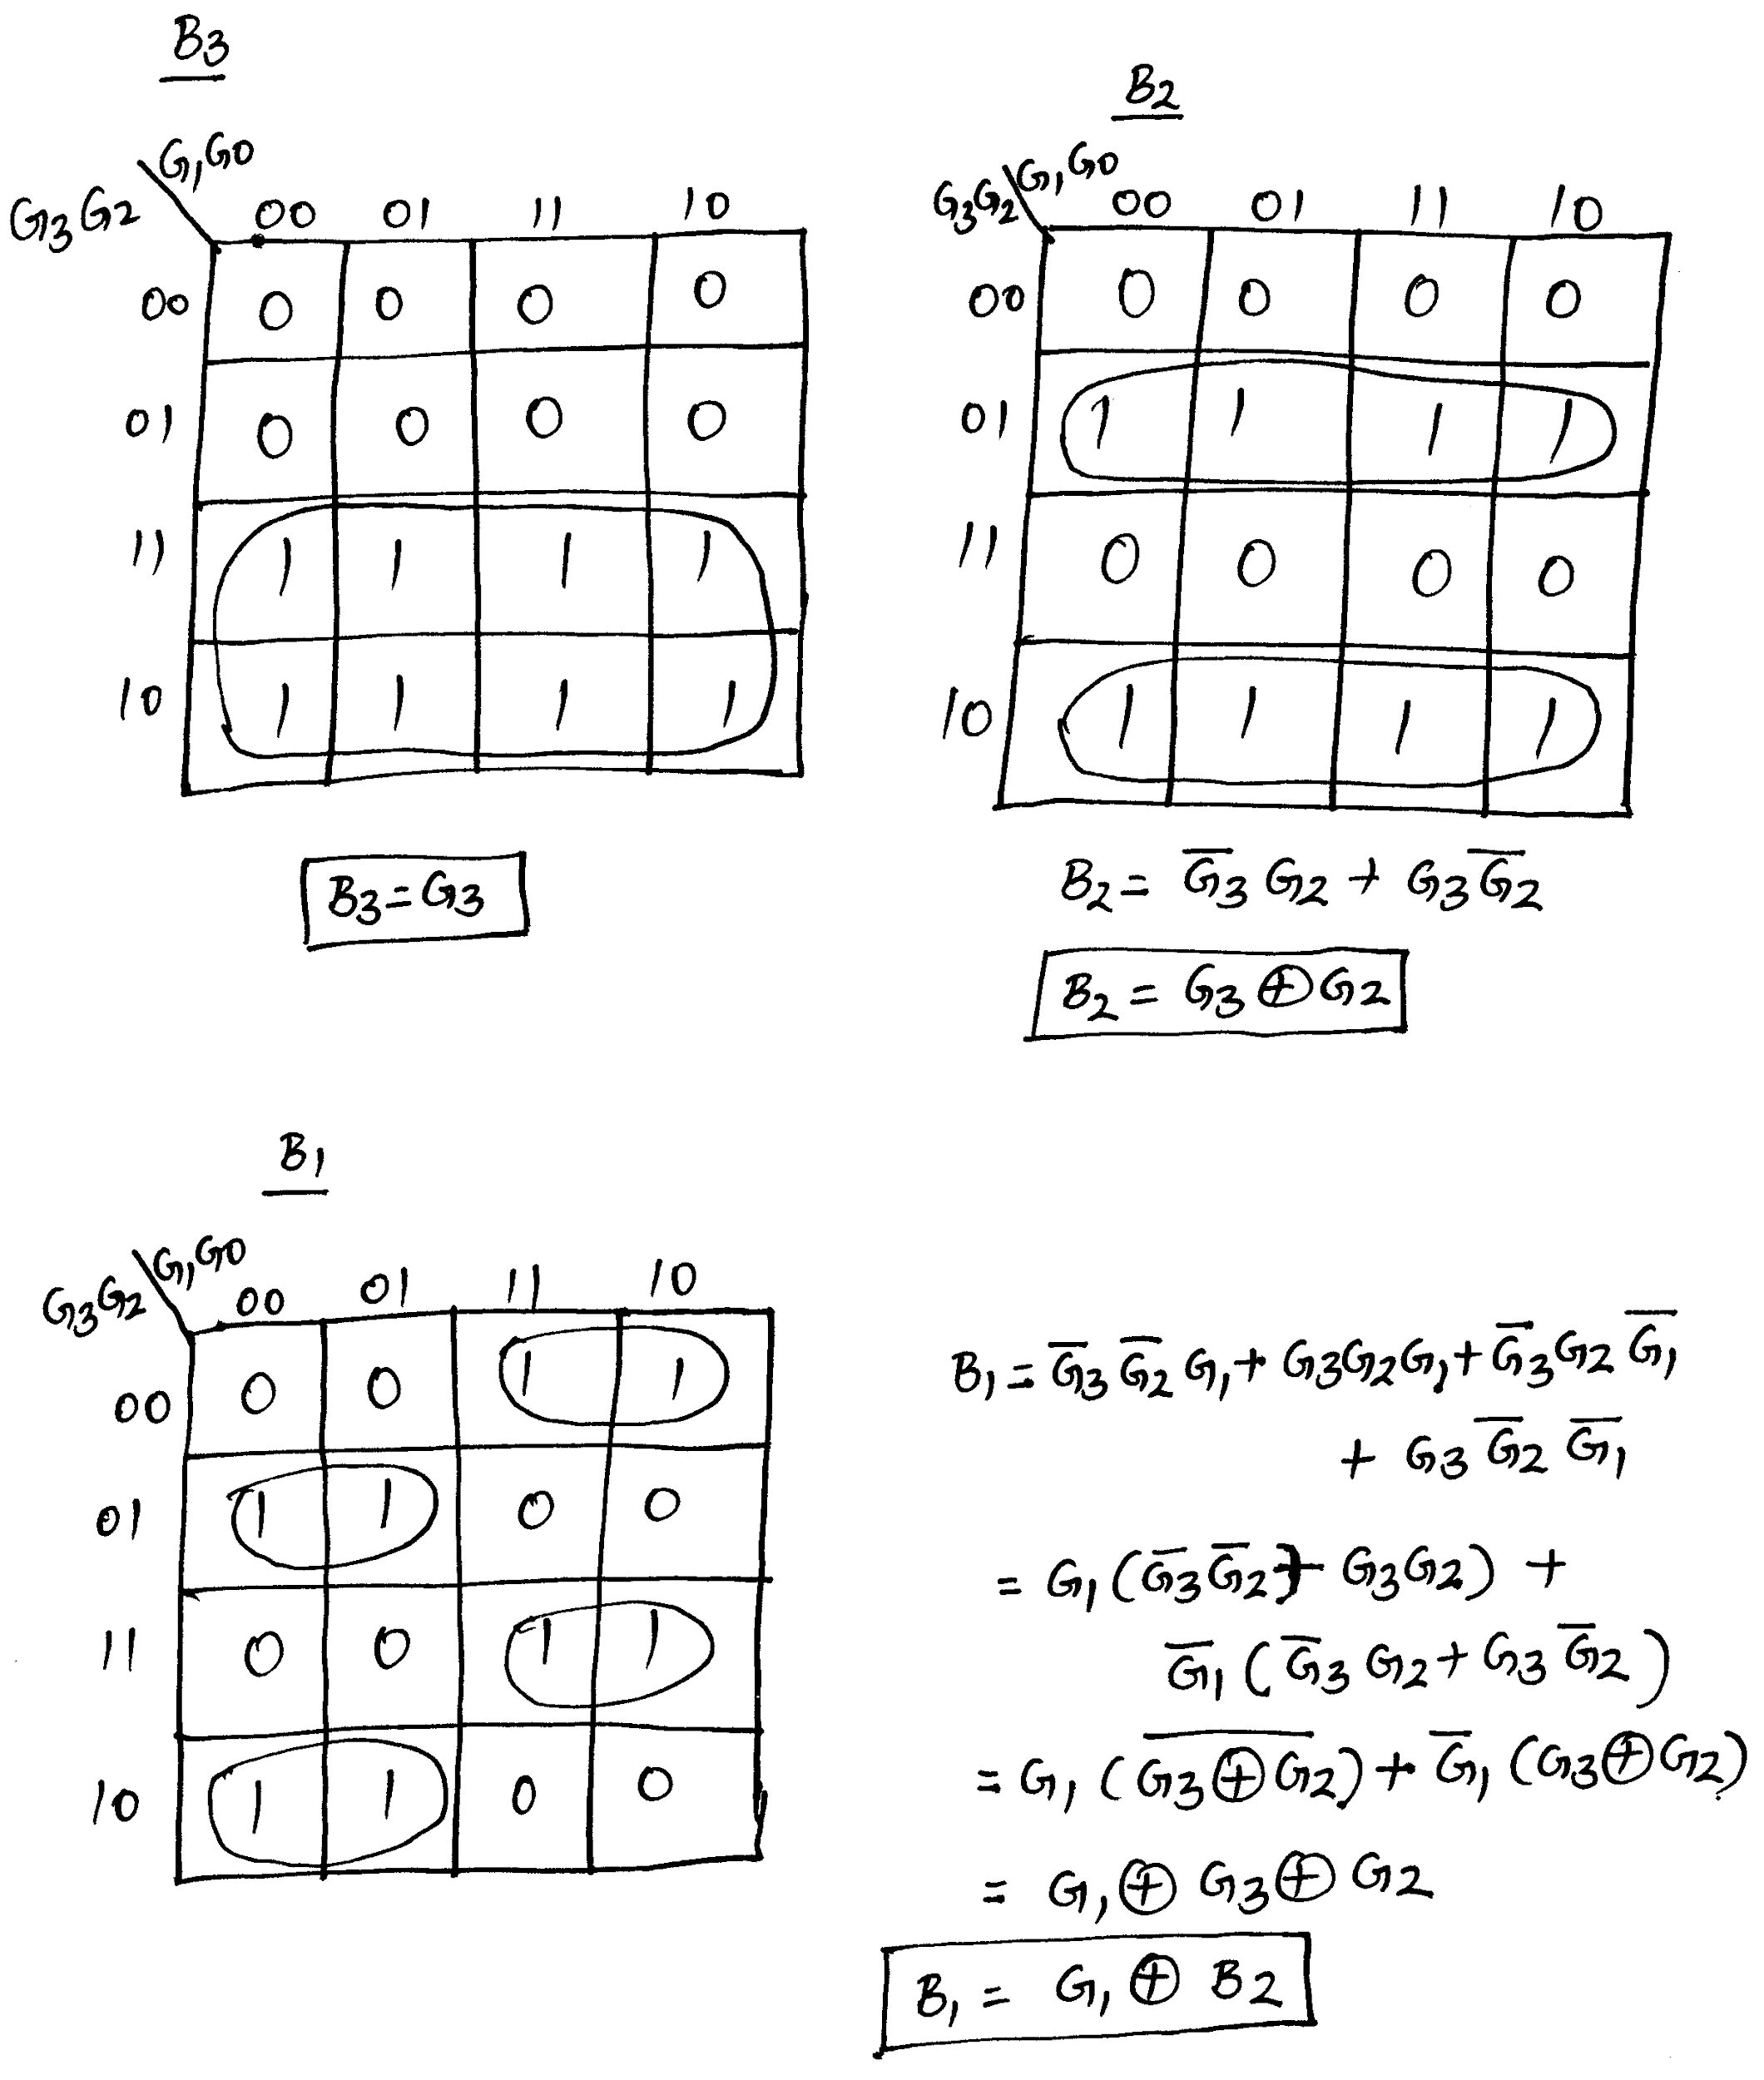 B3
G1G0
G3G2 00 01 11 10
00 0 0 0 0
01 0 0 0 0
11 1 1 1 1
10 1 1 1 1
B3 = G3
B2
G1G0
G3G2 00 01 11 10
00 0 0 0 0
01 1 1 1 1
11 0 0 0 0
10 1 1 1 1
B2 = G̅3 G2 + G3 G̅2
B2 = G3 ⊕ G2
B1
G1G0
G3G2 00 01 11 10
00 0 0 1 1
01 1 1 0 0
11 0 0 1 1
10 1 1 0 0
B1 = G̅3 G̅2 G1 + G3G2G1 + G̅3G2 G̅1
+ G3 G̅2 G̅1
= G1 (G̅3 G̅2 + G3G2) +
G̅1 (G̅3 G2 + G3 G̅2)
= G1 (\overline{G3 ⊕ G2}) + G̅1 (G3 ⊕ G2)
= G1 ⊕ G3 ⊕ G2
B1 = G1 ⊕ B2